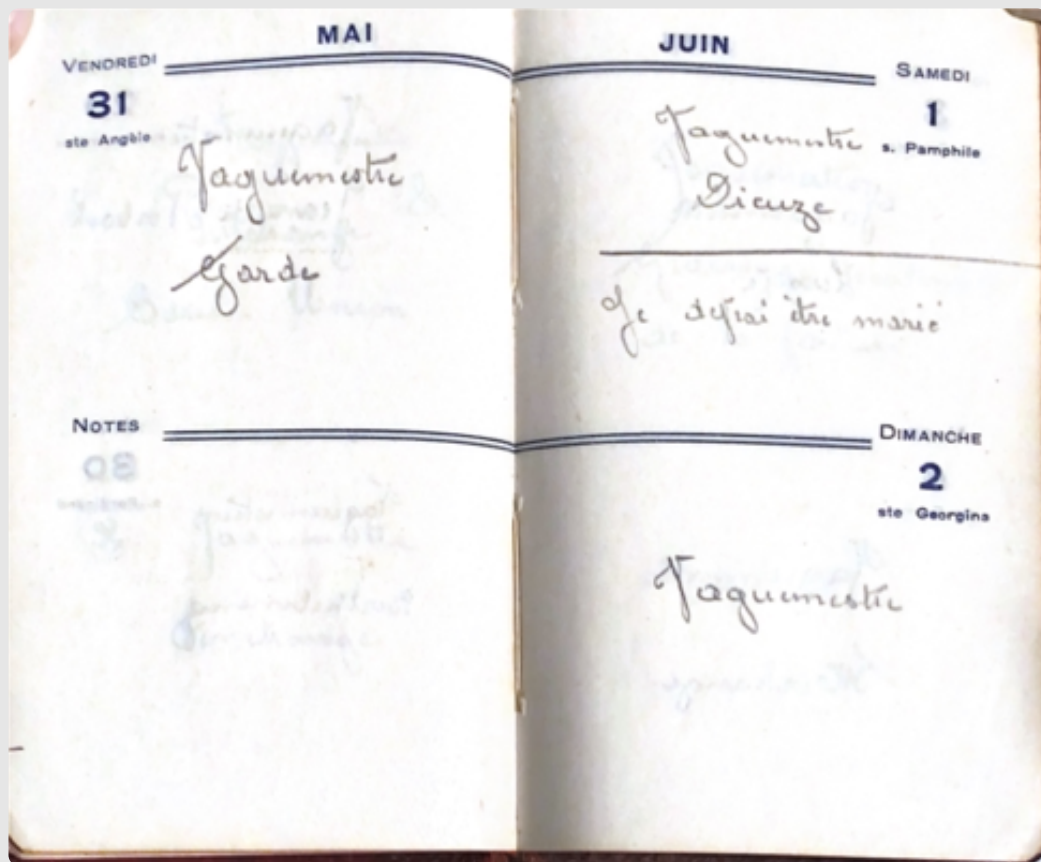 MAI
VENDREDI
31
ste Angèle
Vaguemestre
Garde
NOTES
JUIN
SAMEDI
1
s. Pamphile
Vaguemestre
Dieuze
Je devrai être marié
DIMANCHE
2
ste Georgina
Vaguemestre